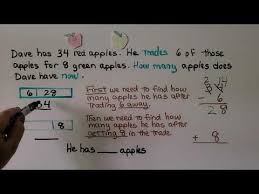 Dave has 34 red apples. He trades 6 of those
apples for 8 green apples. How many apples does
Dave have now.
6 | 28
34
8
First we need to find how
many apples he has after
trading 6 away.
2 14
3 4
- 6
2 8
Then we need to find how
many apples he has after
getting 8 in the trade.
+ 8
He has ____ apples